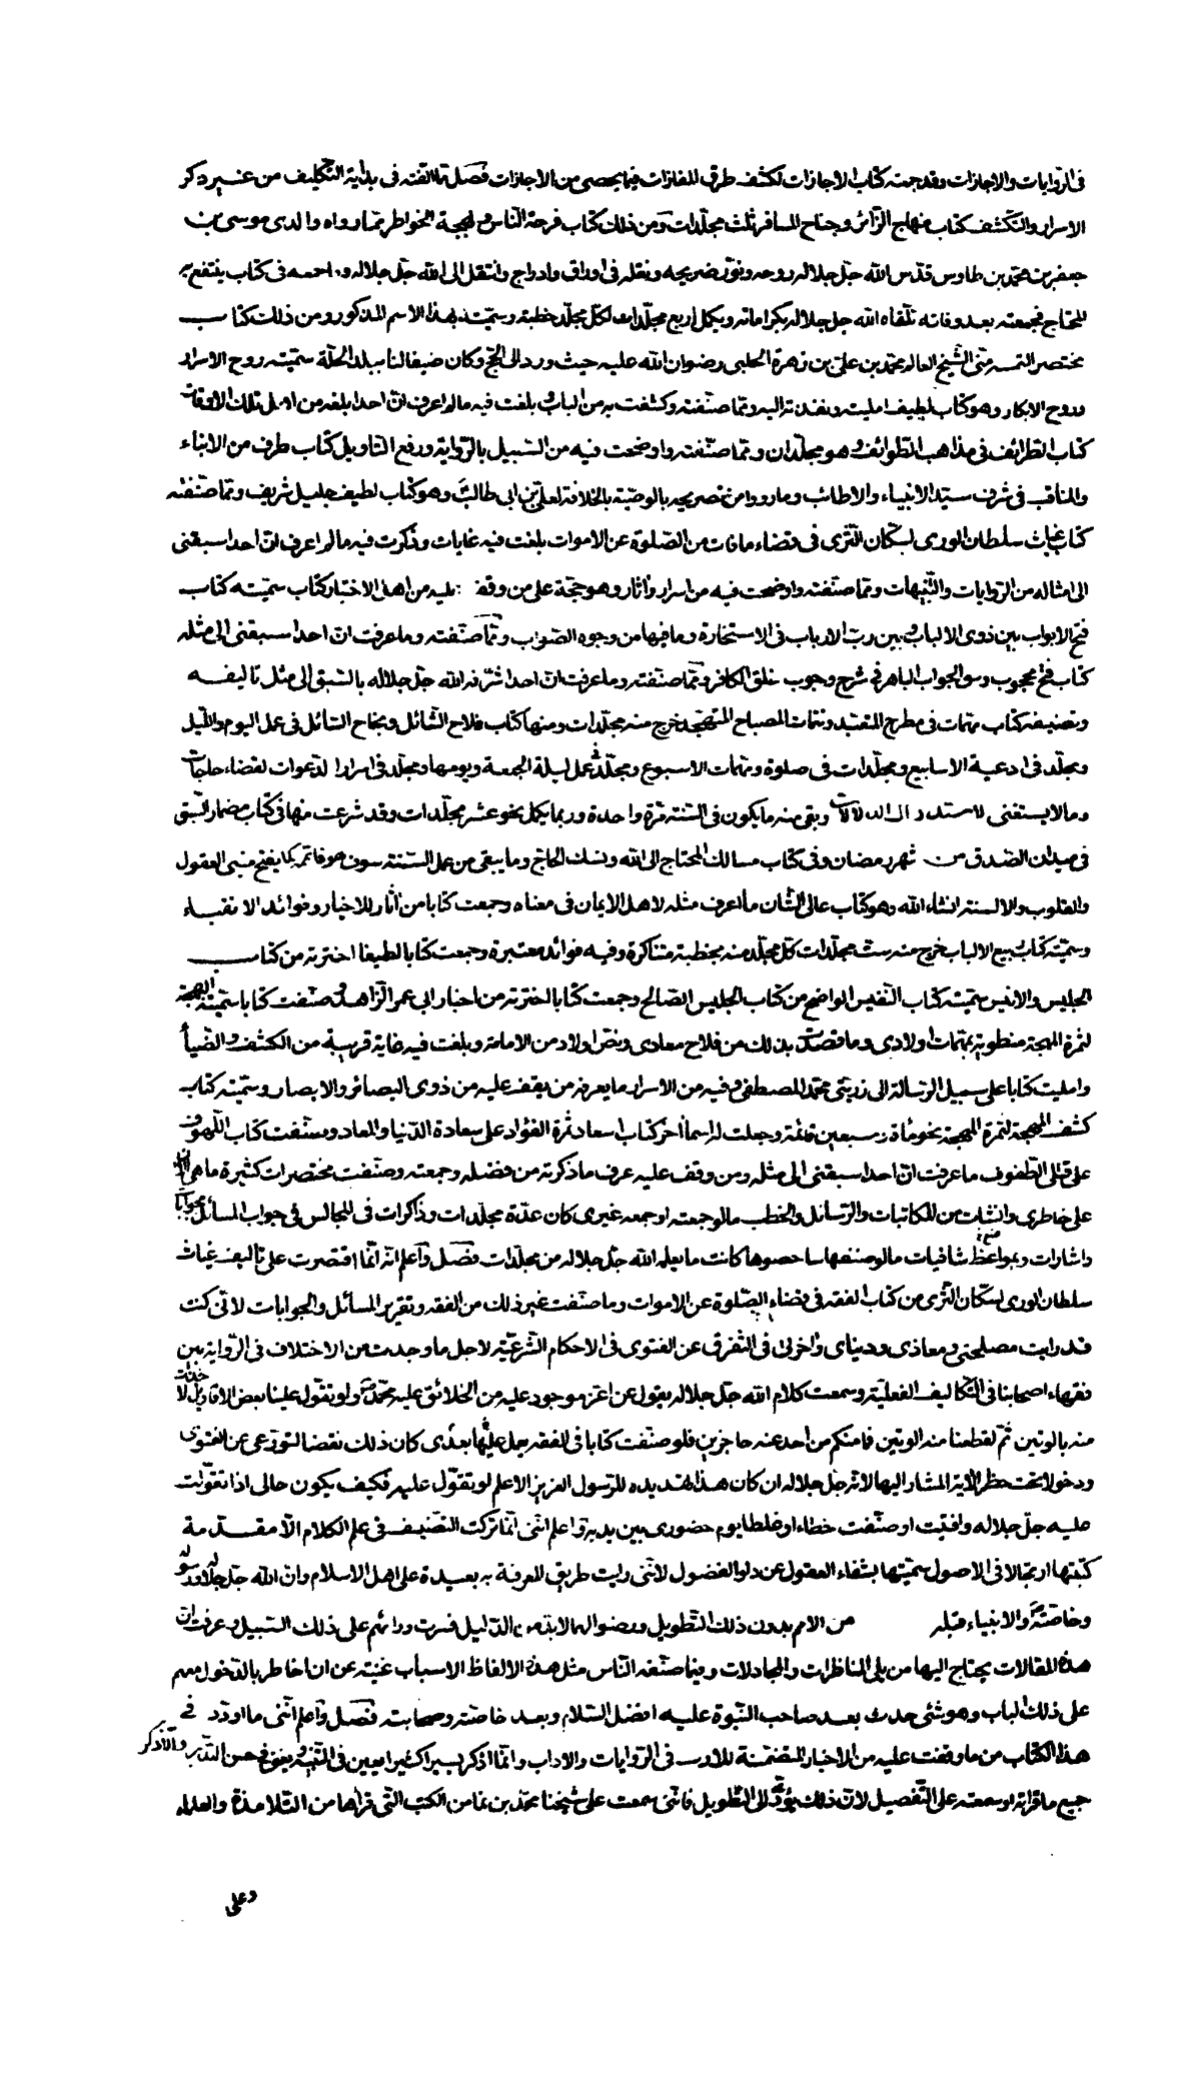 فى الروايات والاجازات وقد جمعته كتاب الاجازات لكشف طرق المفازات فيما يحصى من الاجازات فصل مما الفته فى بداية التكليف من غير ذكر
الاسرار والتكشف كتاب منهاج الزائر وجناح المسافر ثلث مجلدات ومن ذلك كتاب فرحة الناس وبهجة الخواطر مما رواه والدى موسى بن
جعفر بن محمد بن طاوس قدس الله جل جلاله روحه ونور ضريحه ونقله فى اوراق وادراج وانتقل الى الله جل جلاله و جمعه فى كتاب ينتفع به
المحتاج فجمعته بعد وفاته تلقاه الله جل جلاله بكراماته ويكمل اربع مجلدات لكل مجلد خطبة وسميته بهذا الاسم المذكور ومن ذلك كتاب
مختصر التمسه منى الشيخ العالم محمد بن على بن زهرة الحلبى رضوان الله عليه حيث ورد الى الحج وكان ضيفا لنا ببلد الحلة سميته روح الاسرار
وروح الابكار وهو كتاب لطيف امليته ونفذته اليه ومما صنفته وكشفت به من الباب بلغت فيه ما لم اعرف ان احدا بلغه من اهل تلك الاوقات
كتاب الطرائف فى مذاهب الطوائف وهو مجلدان ومما صنفته واوضحت فيه من السبيل بالرواية ورفع التاويل كتاب طرف من الانباء
والمناقب فى شرف سيد الانبياء والاطائب وما رووا من تصريحه بالوصية بالخلافة لعلى بن ابى طالب وهو كتاب لطيف جليل شريف ومما صنفته
كتاب غياث سلطان الورى لسكان الثرى فى قضاء ما فات من الصلوة عن الاموات بلغت فيه غايات وذكرت فيه ما لم اعرف ان احدا سبقنى
الى امثاله من الروايات والتنبيهات ومما صنفته واوضحت فيه من اسرار واثار وهو حجة على من وقف عليه من اهل الاختيار كتاب سميته كتاب
فتح الابواب بين ذوى الالباب وبين رب الارباب فى الاستخارة وما فيها من وجوه الصواب ومما صنفته وما عرفت ان احدا سبقنى الى مثله
كتاب فتح محجوب الجواب الباهر فى شرح وجوب خلق الكافر ومما صنفته وما عرفت ان احدا شرفه الله جل جلاله بالسبق الى مثل تاليفه
وتصنيفه كتاب مهمات فى مطرح المتعبد وتتمات المصباح المتهجد خرج منه مجلدات ومنها كتاب فلاح السائل ونجاح السائل فى عمل اليوم والليل
ومجلد فى ادعية الاسابيع ومجلدات فى صلوة ومهمات الاسبوع ومجلد فى عمل ليلة الجمعة ويومها ومجلد فى اسرار الدعوات لقضاء حاجات
وما لا يستغنى وبقى منه ما يكون فى السنة مرة واحدة وربما يكمل نحو عشر مجلدات وقد شرعت منها فى كتاب مضمار السبق
فى ميدان الصدق من شهر رمضان وفى كتاب مسالك المحتاج الى الله ومناسك الحاج وما يبقى من عمل السنة سوف هو فاتمه كما يفتح منى العقول
والقلوب والالسنة انشاء الله وهو كتاب عالى الشان ما اعرف مثله لاهل الايمان فى معناه وجمعت كتابا من اثار الاخيار وفوائد الاتقياء
وسميته كتاب ربيع الالباب خرج منه ست مجلدات كل مجلد منه بخطبة متناكرة وفيه فوائد معتبرة وجمعت كتابا لطيفا اخترته من كتاب
الجليس والانيس سميته كتاب النفيس الواضح من كتاب الجليس الصالح وجمعت كتابا اخترته من اخبار ابى عمر الزاهد وصنفت كتابا سميته البهجة
لثمرة المهجة منظوية بمهمات اولادى وما قصدت بذلك من فلاح معادى وبعض اولاد من الامامة وبلغت فيه غاية قريبة من الكشف والضياء
وامليت كتابا على سبيل الرسالة الى ذريتى محمد المصطفى وفيه من الاسرار ما يعرفه من يقف عليه من ذوى البصائر والابصار وسميته كتاب
كشف المحجة لثمرة المهجة نحو مأة وسبعين قائمة وجعلت له اسما آخر كتاب اسعاد ثمرة الفؤاد على سعادة الدنيا والمعاد وصنفت كتاب اللهوف
على قتلى الطفوف ما عرفت ان احدا سبقنى الى مثله ومن وقف عليه عرف ما ذكرته من فضله وجمعته وصنفت مختصرات كثيرة ما هى الآن
على خاطرى وانشات من المكاتبات والرسائل والخطب ما لو جمعته او جمعه غيرى كان عدة مجلدات ومذاكرات فى المجالس فى جواب المسائل بجوابات
واشارات وبمواعظ شافيات ما لو صنفها سامعوها كانت ما يعلمه الله جل جلاله من مجلدات فصل واعلم انه انما اقتصرت على تاليف غياث
سلطان الورى لسكان الثرى من كتاب الفقه فى قضاء الصلوة عن الاموات وما صنفت غير ذلك من الفقه وتقرير المسائل والجوابات لانى كنت
قد رايت مصلحتى ومعاذى ودنياى واخرتى فى التفرق عن الفتوى فى الاحكام الشرعية لاجل ما وجدت من الاختلاف فى الرواية بين
فقهاء اصحابنا فى التكاليف الفعلية وسمعت كلام الله جل جلاله يقول عن اعز موجود عليه من الخلائق عليه محمد ولو تقول علينا بعض الاقاويل لاخذنا
منه باليمين ثم لقطعنا منه الوتين فما منكم من احد عنه حاجزين فلو صنفت كتابا فى الفقه يعمل عليها بعدى كان ذلك نقضا لتورعى عن الفتوى
ودخولا تحت حظر الآية المشار اليها لانه جل جلاله ان كان هذا تهديده للرسول العزيز الاعلم لو تقول عليه فكيف يكون حالى اذا تقولت
عليه جل جلاله وافتيت او صنفت خطاء او غلطا يوم حضورى بين يديه واعلم اننى انما تركت التصنيف فى علم الكلام الا مقدمة
كتبتها ارتجالا فى الاصول سميتها بشفاء العقول عن داء الفضول لاننى رايت طريق المعرفة به بعيدة على اهل الاسلام وان الله جل جلاله ورسوله
وخاصته والانبياء قبله من الامم بدون ذلك التطويل ورضوا بما لابد منه من الدليل فسرت ورائهم على ذلك السبيل وعرفت ان
هذه المقالات يحتاج اليها من يلى المناظرات والمجادلات وفيما صنفه الناس مثل هذه الالفاظ الاسباب غنية عن ان اخاطر بالدخول معهم
على ذلك الباب وهو شئ حدث بعد صاحب النبوة عليه افضل السلام وبعد خاصته وصحابته فصل واعلم اننى ما اورد فى
هذا الكتاب من ما وقفت عليه من الاخبار المتضمنة فى الروايات والاداب وانما اذكر يسيرا كثيرا يعين فى التنبيه ويقوى فى حسن التدبر والتذكر
جميع ما قراته او سمعته على التفصيل لان ذلك يؤدى الى التطويل فاننى سمعت على شيخنا محمد بن نما من الكتب التى قراها من التلامذة والعلماء
وعلى